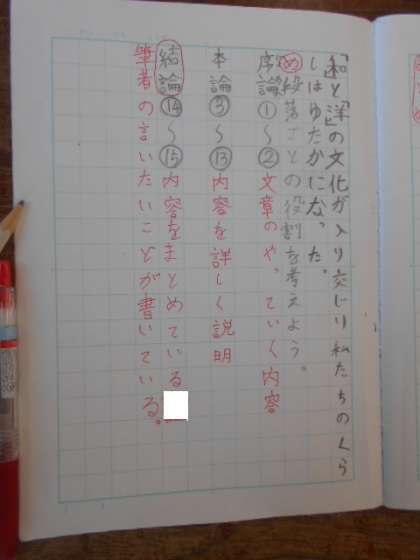 「和」と「洋」の文化が入り交じり私たちのくら
しはゆたかになった。
め段落ごとの役割を考えよう。
序論①～②文章のやっていく内容
本論③～⑬内容を詳しく説明
結論⑭～⑮内容をまとめている
筆者の言いたいことが書いている。